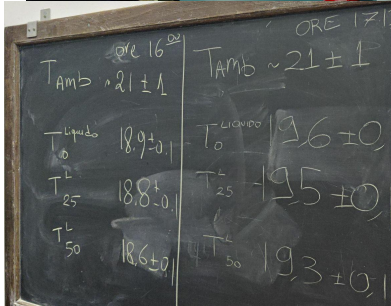 ore 16 00
TAmb ~21 ± 1
T₀ Liquido 18.9 ± 0.1
T₂₅ L 18.8 ± 0.1
T₅₀ L 18.6 ± 0.1
ORE 17
TAmb ~21 ± 1
T₀ LIQUIDO 19,6 ± 0,
T₂₅ L 19,5 ± 0,
T₅₀ L 19,3 ± 0,1